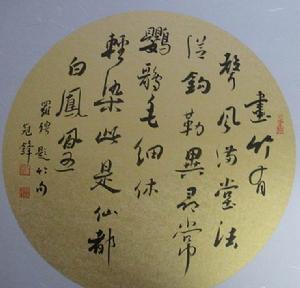 畫竹有
聲風滿堂法
從鈎勒異尋常
鸚毛細休
輕染此是仙都
白鳳凰
羅聘題竹句